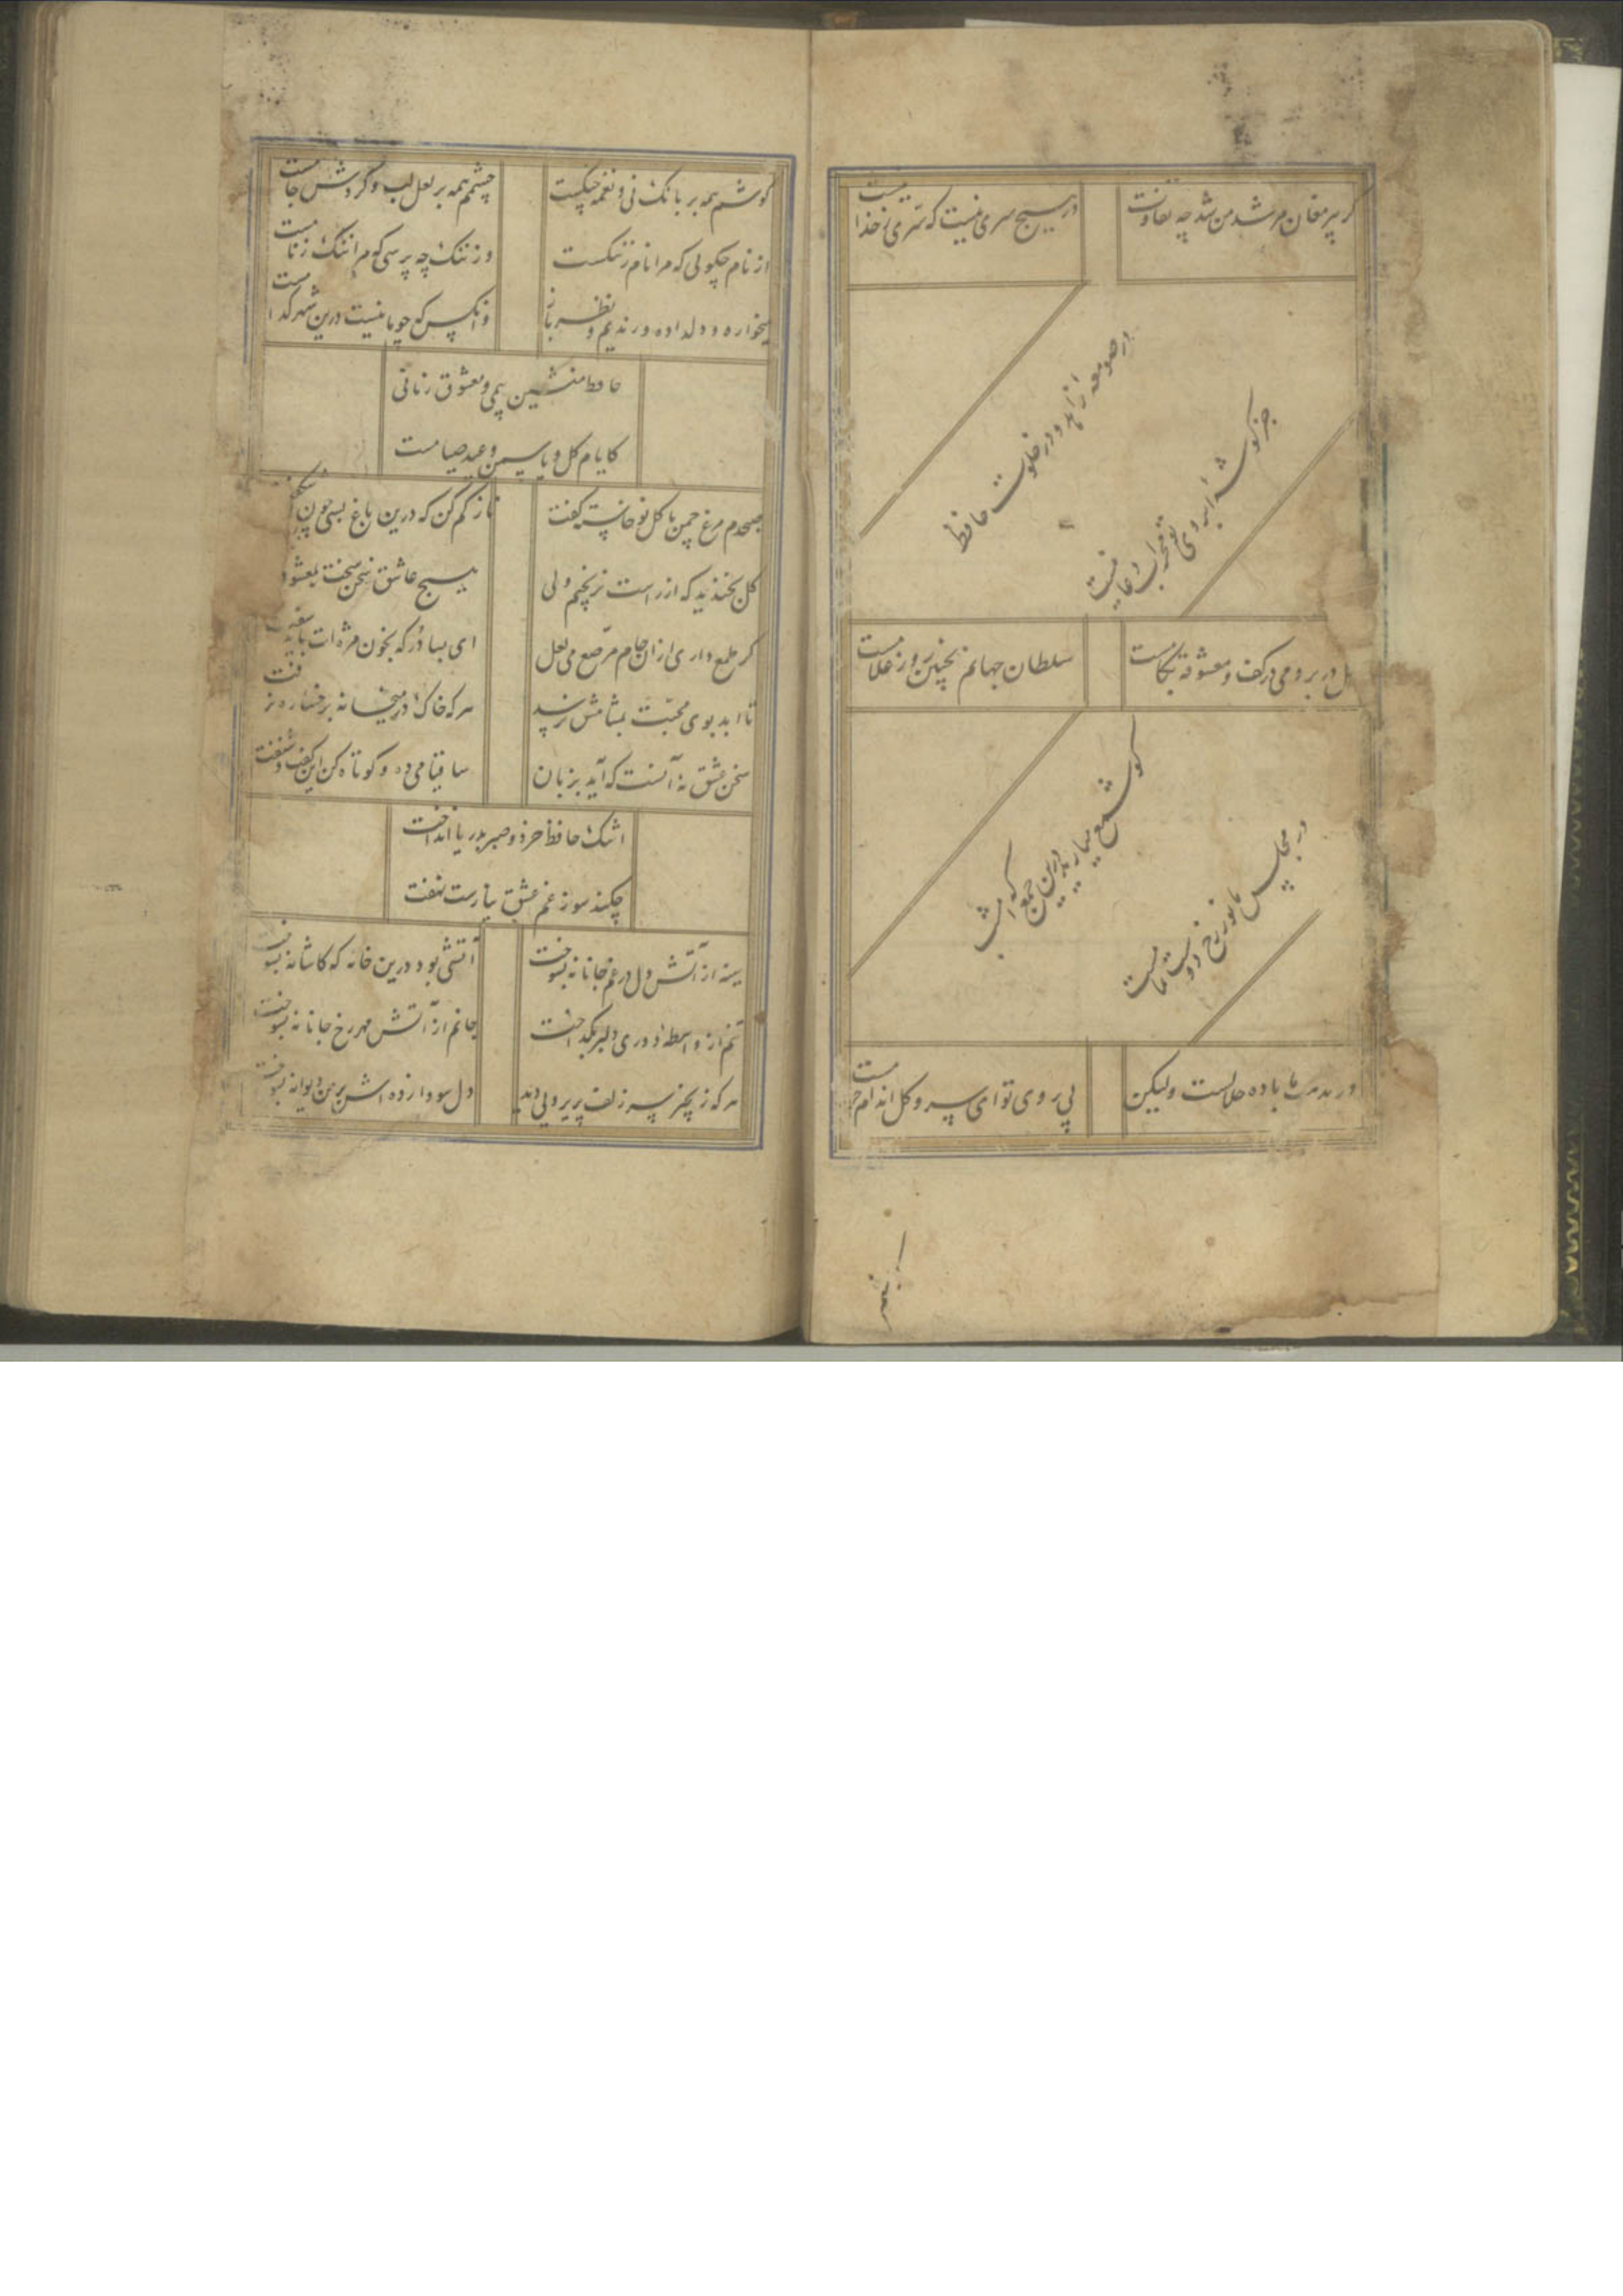 کر پیر مغان مرشد من شد چه تفاوت
در هیچ سری نیست که سری ز خدا نیست
در صومعه زاهد و در خلوت حافظ
جز کوشه ابروی تو محراب دعا نیست
کل در بر و می در کف و معشوقه بکامست
سلطان جهانم بچنین روز غلامست
کو شمع میارید درین جمع که امشب
در مجلس ما نور رخ دوست تمامست
در مذهب ما باده حلالست ولیکن
بی روی تو ای سرو کل اندام حرامست
کوشم همه بر بانک نی و نغمه چنکست
چشمم همه بر لعل لب و کردش جامست
از نام چکویی که مرا نام ز ننکست
وز ننک چه پرسی که مرا ننک ز نامست
میخواره و دلداده و رندیم و نظرباز
وانکس که چو ما نیست درین شهر کدامست
حافظ منشین بی می و معشوق زمانی
کایام کل و یاسمن و عید صیامست
صبحدم مرغ چمن با کل نو خاسته کفت
ناز کم کن که درین باغ بسی چون تو شکفت
کل بخندید که از راست نرنجیم ولی
هیچ عاشق سخن سخت بمعشوق
کر طمع داری ازان جام مرصع می لعل
ای بسا در که بخون مژه ات باید سفت
تا ابد بوی محبت بمشامش نرسد
هر که خاک در میخانه برخساره نرفت
سخن عشق نه آنست که آید بزبان
ساقیا می ده و کوتاه کن این کفت و شنفت
اشک حافظ خرد و صبر بدریا انداخت
چکند سوز غم عشق نیارست نهفت
سینه از آتش دل در غم جانانه بسوخت
آتشی بود درین خانه که کاشانه بسوخت
تنم از واسطه دوری دلبر بکداخت
جانم از آتش مهر رخ جانانه بسوخت
هر که زنجیر سر زلف پریرویی دید
دل سودا زده اش بر من دیوانه بسوخت